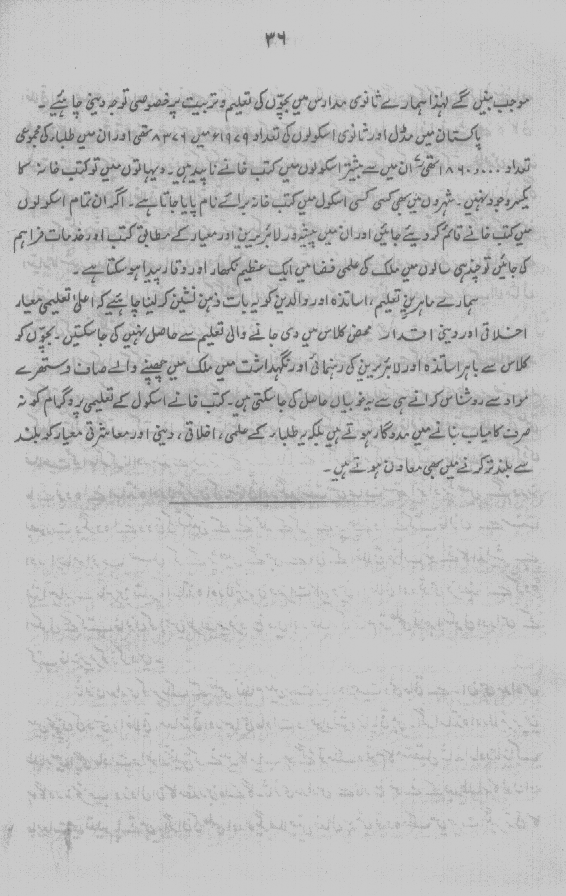 ۳۶
موجب بنیں گے لہذا ہمارے ثانوی مدارس میں بچوں کی تعلیم و تربیت پر خصوصی توجہ دینی چاہئیے ۔
پاکستان میں مڈل اور ثانوی اسکولوں کی تعداد ۱۹۷۹ء میں ۸۳۷۶ تھی اور ان میں طلبار کی مجموعی
تعداد تھی ان میں سے بیشتر اسکولوں میں کتب خانے ناپید ہیں ۔ دیہاتوں میں تو کتب خانہ کا
یکسر وجود نہیں ۔ شہروں میں بھی کسی کسی اسکول میں کتب خانہ برائے نام پایا جاتا ہے ۔ اگر ان تمام اسکولوں
میں کتب خانے قائم کر دیئے جائیں اور ان میں پیشہ ور لائبریرین اور معیار کے مطابق کتب اور خدمات فراہم
کی جائیں تو چند ہی سالوں میں ملک کی علمی فضا میں ایک عظیم نکھار اور وقار پیدا ہو سکتا ہے ۔
ہمارے ماہرین تعلیم ، اساتذہ اور والدین کو یہ بات ذہن نشین کر لینا چاہئیے کہ اعلیٰ تعلیمی معیار
اخلاقی اور دینی اقدار محض کلاس میں دی جانے والی تعلیم سے حاصل نہیں کی جا سکتیں ۔ بچوں کو
کلاس سے باہر اساتذہ اور لائبریرین کی رہنمائی اور نگہداشت میں ملک میں چھپنے والے صاف و ستھرے
مواد سے روشناس کرانے ہی سے یہ خوبیاں حاصل کی جا سکتی ہیں ۔ کتب خانے اسکول کے تعلیمی پروگرام کو نہ
صرف کامیاب بنانے میں مددگار ہوتے ہیں بلکہ یہ طلبار کے علمی ، اخلاقی ، دینی اور معاشرتی معیار کو بلند
سے بلند تر کرنے میں بھی معاون ہوتے ہیں ۔